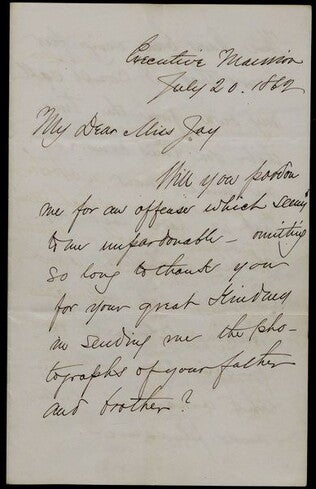 Executive Mansion
July 20. 1862
My Dear Miss Jay
Will you pardon
me for an offense which seems
to me unpardonable – omitting
so long to thank you
for your great kindness
in sending me the pho-
tographs of your father
and brother?